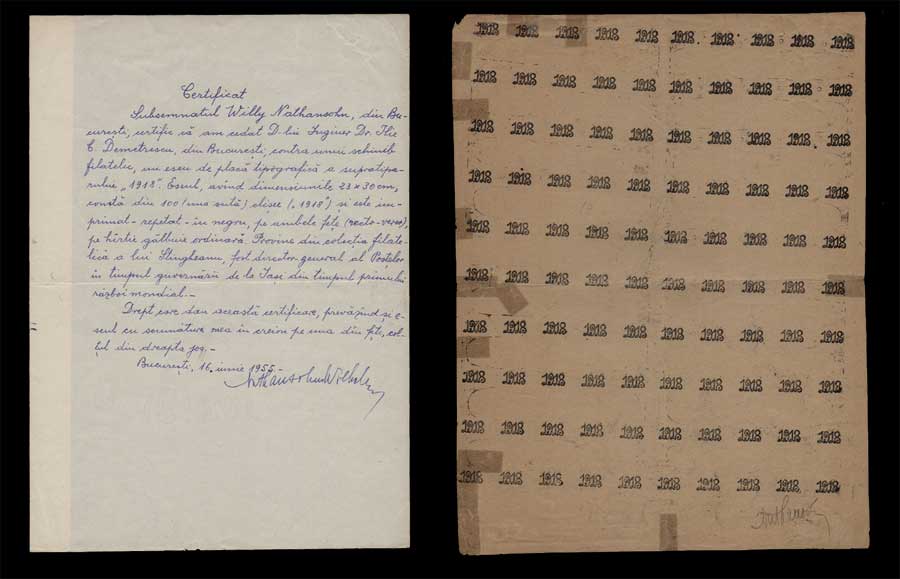 Certificat
Subsemnatul Willy Nathansohn, din Bu-
curești, certific că am cedat D-lui Inginer Dr. Ilie
C. Demetrescu, din București, contra unui schimb
filatelic, un eseu de placă tipografică a supratipa-
rului „1918". Eseul, având dimensiunile 23 x 30 cm,
constă din 100 (una sută) clișee („1918") și este im-
primat - repetat - în negru, pe ambele fețe (recto-verso),
pe hârtie gălbuie ordinară. Provine din colecția filate-
lică a lui Slingheanu, fost director general al Poștelor
în timpul guvernării de la Iași din timpul primului
război mondial.-
Drept care dau această certificare, prevăzând și e-
seul cu semnătura mea în creion pe una din fețe, col-
țul din dreapta jos.-
București, 16 iunie 1955.-
Nathansohn Wilhelm
1918 1918 1918 1918 1918 1918 1918 1918 1918 1918
1918 1918 1918 1918 1918 1918 1918 1918 1918 1918
1918 1918 1918 1918 1918 1918 1918 1918 1918 1918
1918 1918 1918 1918 1918 1918 1918 1918 1918 1918
1918 1918 1918 1918 1918 1918 1918 1918 1918 1918
1918 1918 1918 1918 1918 1918 1918 1918 1918 1918
1918 1918 1918 1918 1918 1918 1918 1918 1918 1918
1918 1918 1918 1918 1918 1918 1918 1918 1918 1918
1918 1918 1918 1918 1918 1918 1918 1918 1918 1918
1918 1918 1918 1918 1918 1918 1918 1918 1918 1918